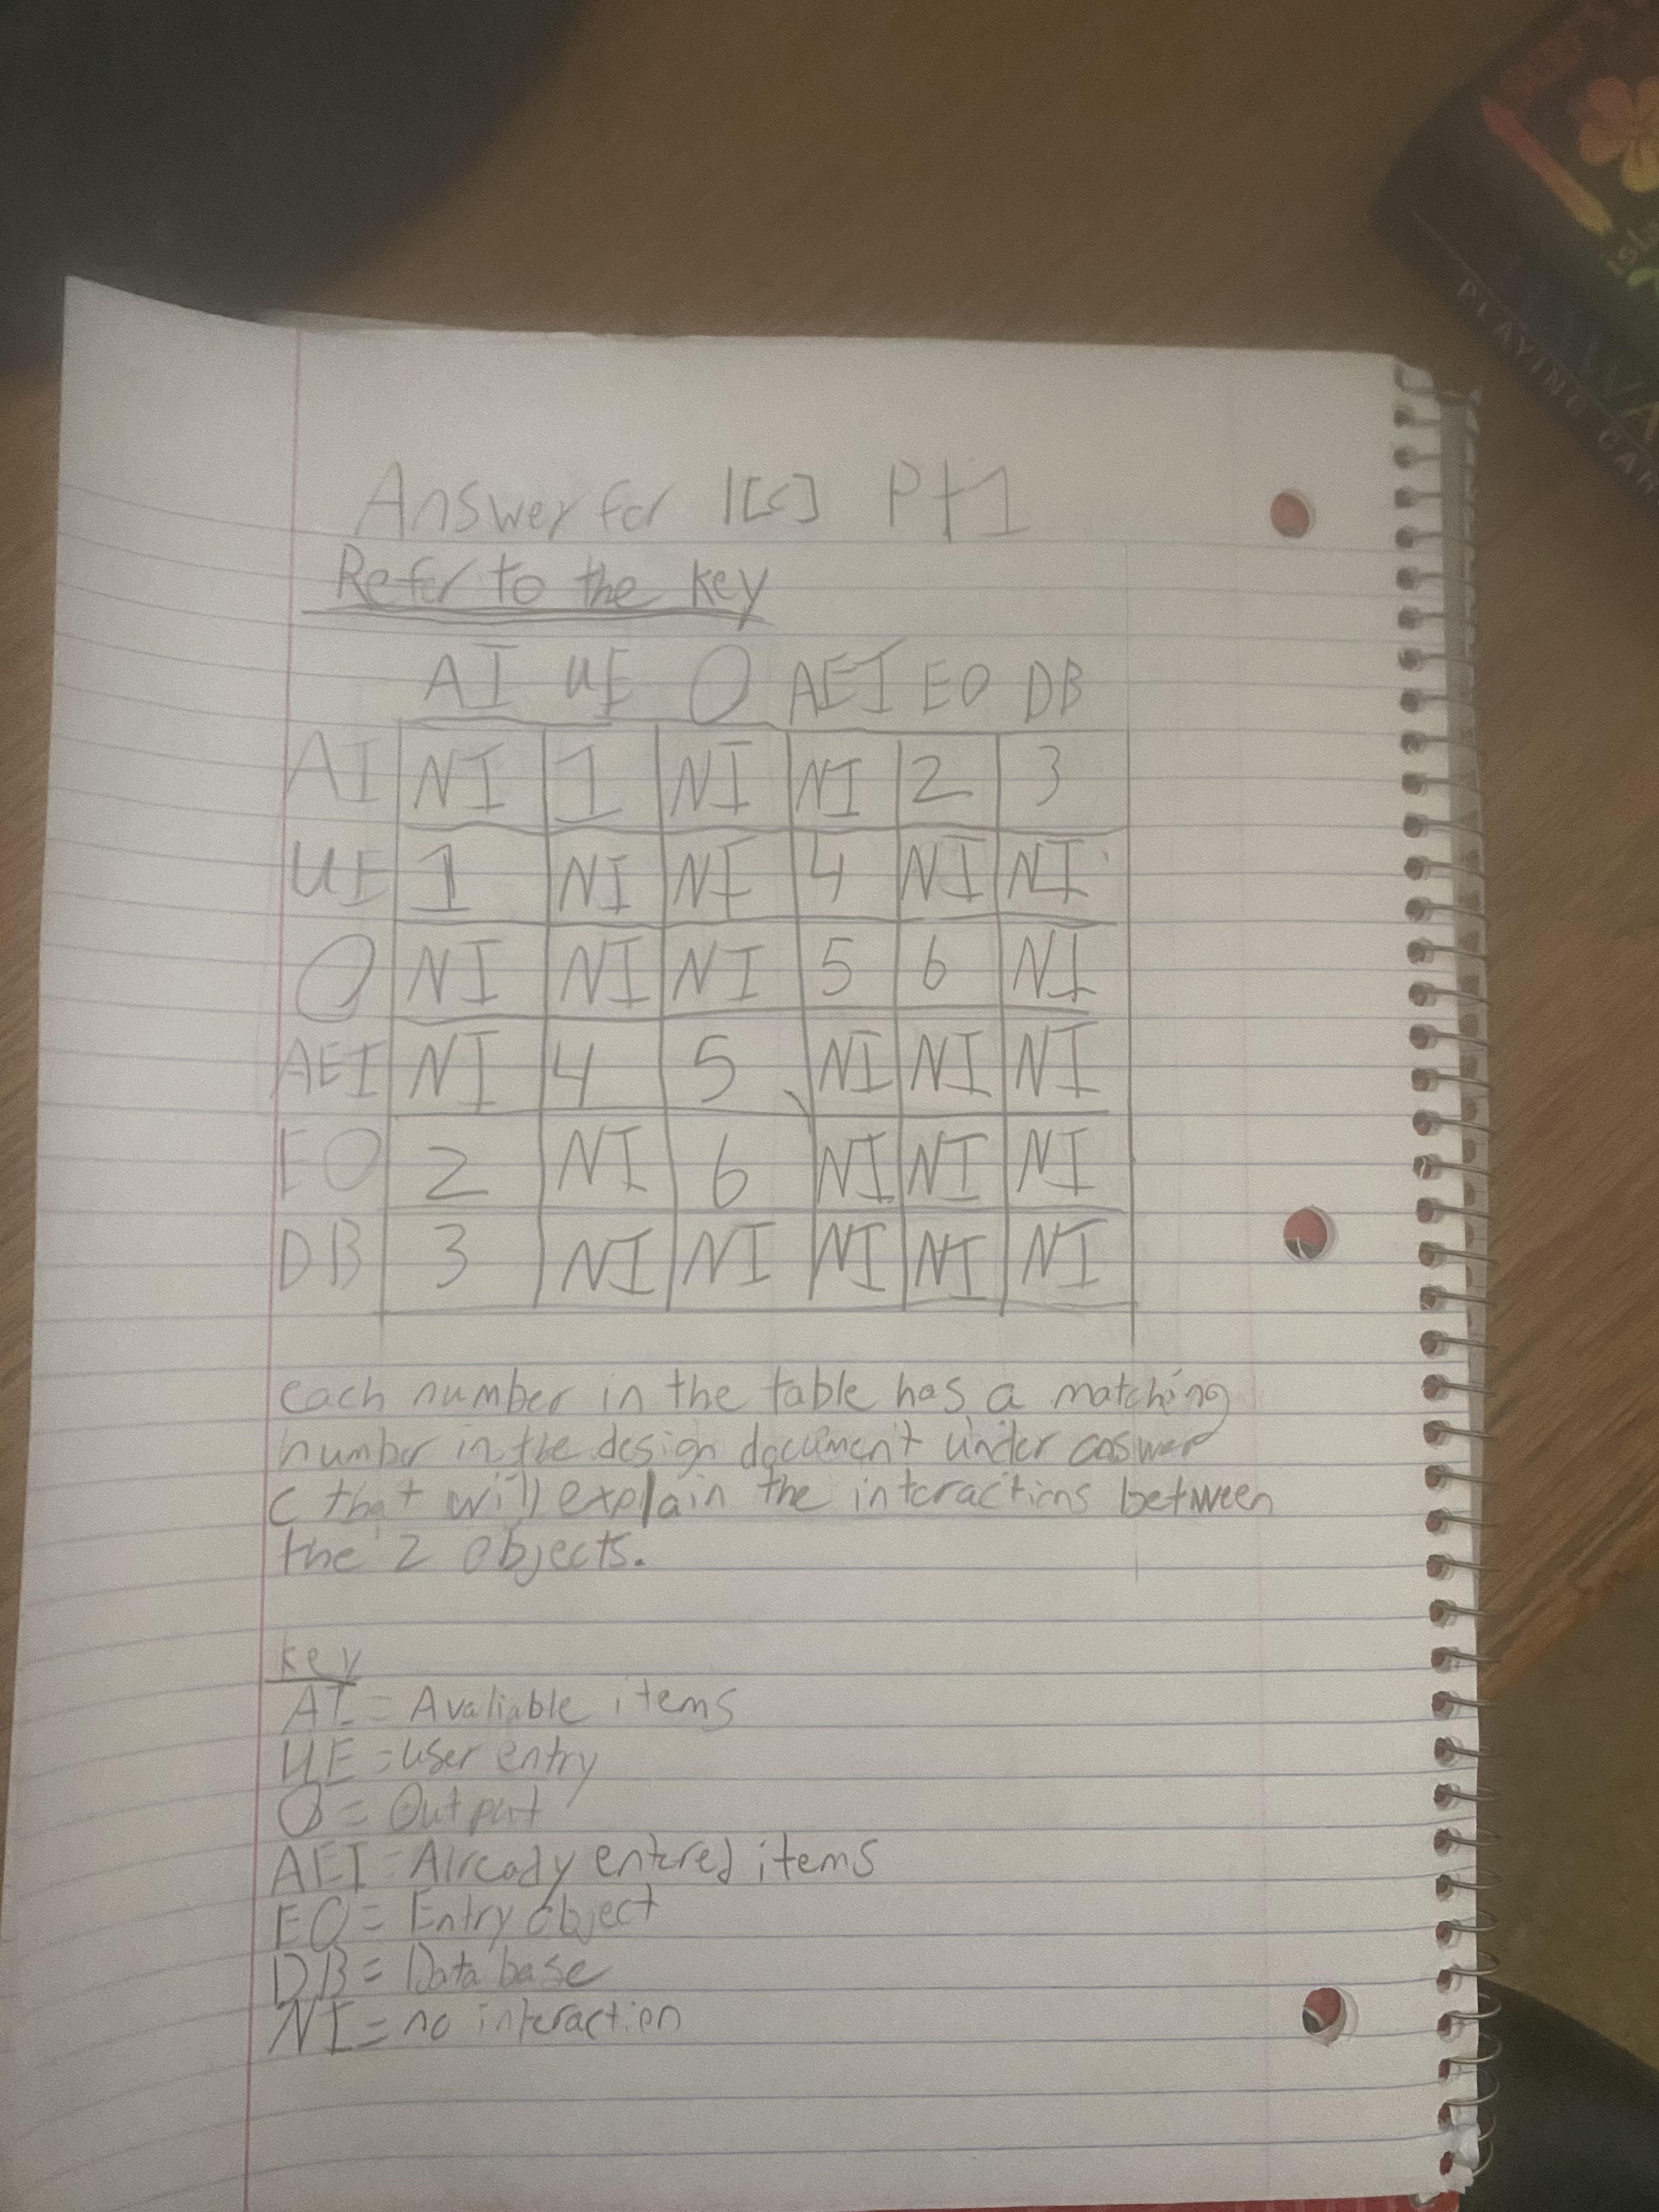 Answer for 1[c] Pt1
Refer to the key
AI UE O AEI EO DB
AI NI 1 NI NI 2 3
UE 1 NI NI 4 NI NI
O NI NI NI 5 6 NI
AEI NI 4 5 NI NI NI
EO 2 NI 6 NI NI NI
DB 3 NI NI NI NI NI
each number in the table has a matching
number in the design document under
c that will explain the interactions between
the 2 objects.
key
AI = Avaliable items
UE = user entry
O = Output
AEI = Already entered items
EO = Entry object
DB = Data base
NI = no interaction
PLAYING CAR